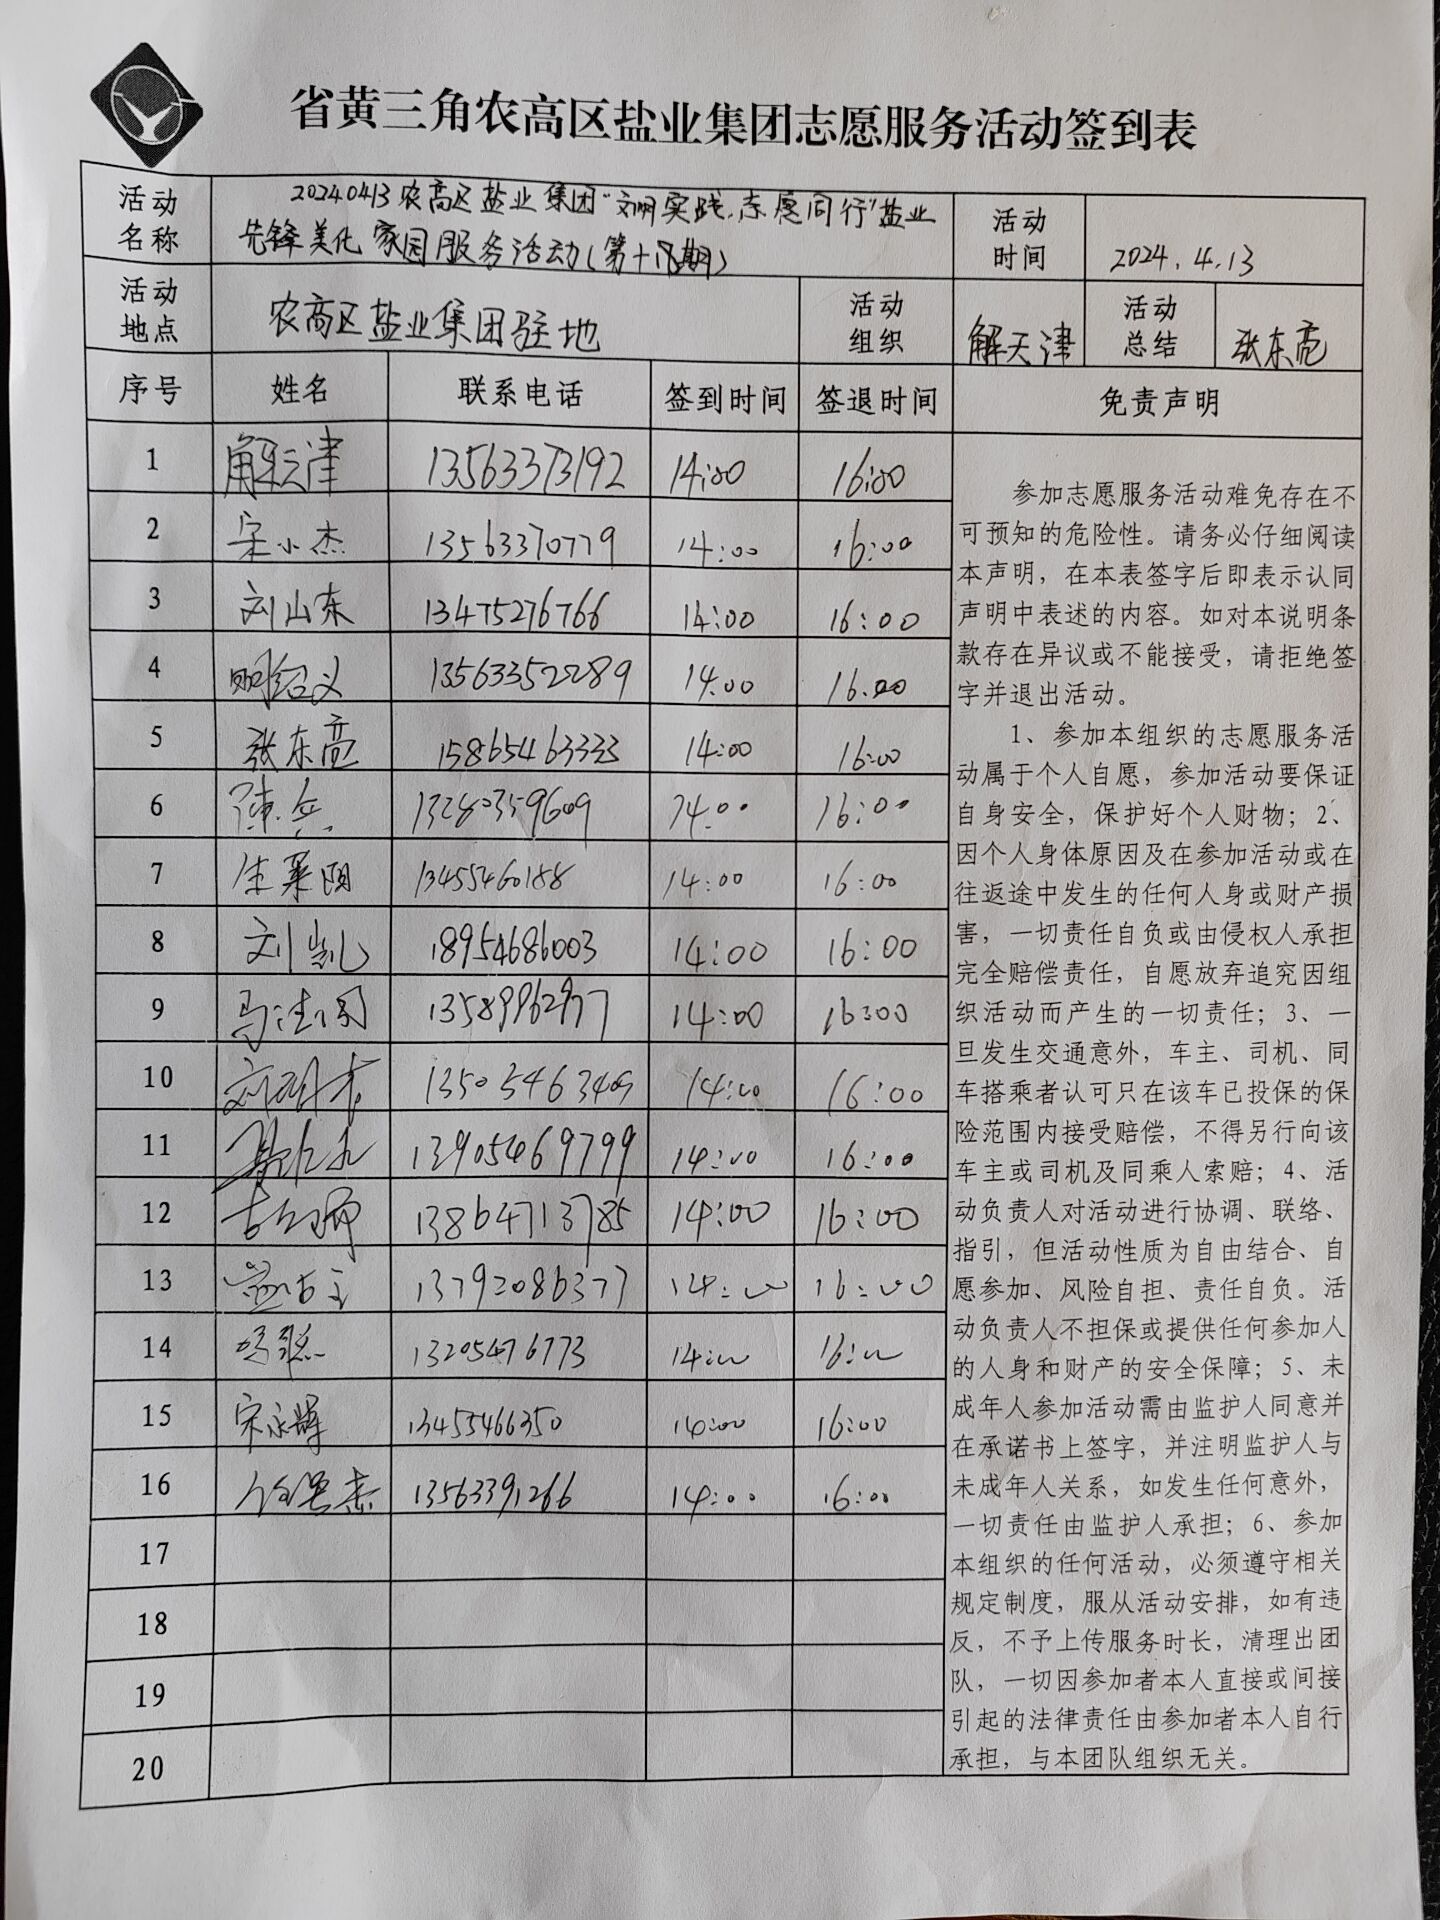 省黄三角农高区盐业集团志愿服务活动签到表
活动名称 20240413农高区盐业集团“文明实践、志愿同行”盐业 活动时间 2024.4.13
先锋美化家园服务活动(第十八期)
活动地点 农高区盐业集团驻地 活动组织 解天津 活动总结 张东亮
序号 姓名 联系电话 签到时间 签退时间 免责声明
1 解天津 13563373192 14:00 16:00
2 宋小杰 13563370779 14:00 16:00
3 刘山东 13475276766 14:00 16:00
4 绍义 13563352289 14:00 16:00
5 张东亮 15865463333 14:00 16:00
6 陈兵 13280359609 14:00 16:00
7 生莱阳 13455460188 14:00 16:00
8 刘凯 18954686003 14:00 16:00
9 马 13589962977 14:00 16:00
10 刘 13505463409 14:00 16:00
11 13905469799 14:00 16:00
12 13864713785 14:00 16:00
13 13792086377 14:00 16:00
14 13205476773 14:00 16:00
15 宋永辉 13455466350 14:00 16:00
16 任 杰 13563391266 14:00 16:00
17
18
19
20
参加志愿服务活动难免存在不
可预知的危险性。请务必仔细阅读
本声明，在本表签字后即表示认同
声明中表述的内容。如对本说明条
款存在异议或不能接受，请拒绝签
字并退出活动。
1、参加本组织的志愿服务活
动属于个人自愿，参加活动要保证
自身安全，保护好个人财物；2、
因个人身体原因及在参加活动或在
往返途中发生的任何人身或财产损
害，一切责任自负或由侵权人承担
完全赔偿责任，自愿放弃追究因组
织活动而产生的一切责任；3、一
旦发生交通意外，车主、司机、同
车搭乘者认可只在该车已投保的保
险范围内接受赔偿，不得另行向该
车主或司机及同乘人索赔；4、活
动负责人对活动进行协调、联络、
指引，但活动性质为自由结合、自
愿参加、风险自担、责任自负。活
动负责人不担保或提供任何参加人
的人身和财产的安全保障；5、未
成年人参加活动需由监护人同意并
在承诺书上签字，并注明监护人与
未成年人关系，如发生任何意外，
一切责任由监护人承担；6、参加
本组织的任何活动，必须遵守相关
规定制度，服从活动安排，如有违
反，不予上传服务时长，清理出团
队，一切因参加者本人直接或间接
引起的法律责任由参加者本人自行
承担，与本团队组织无关。